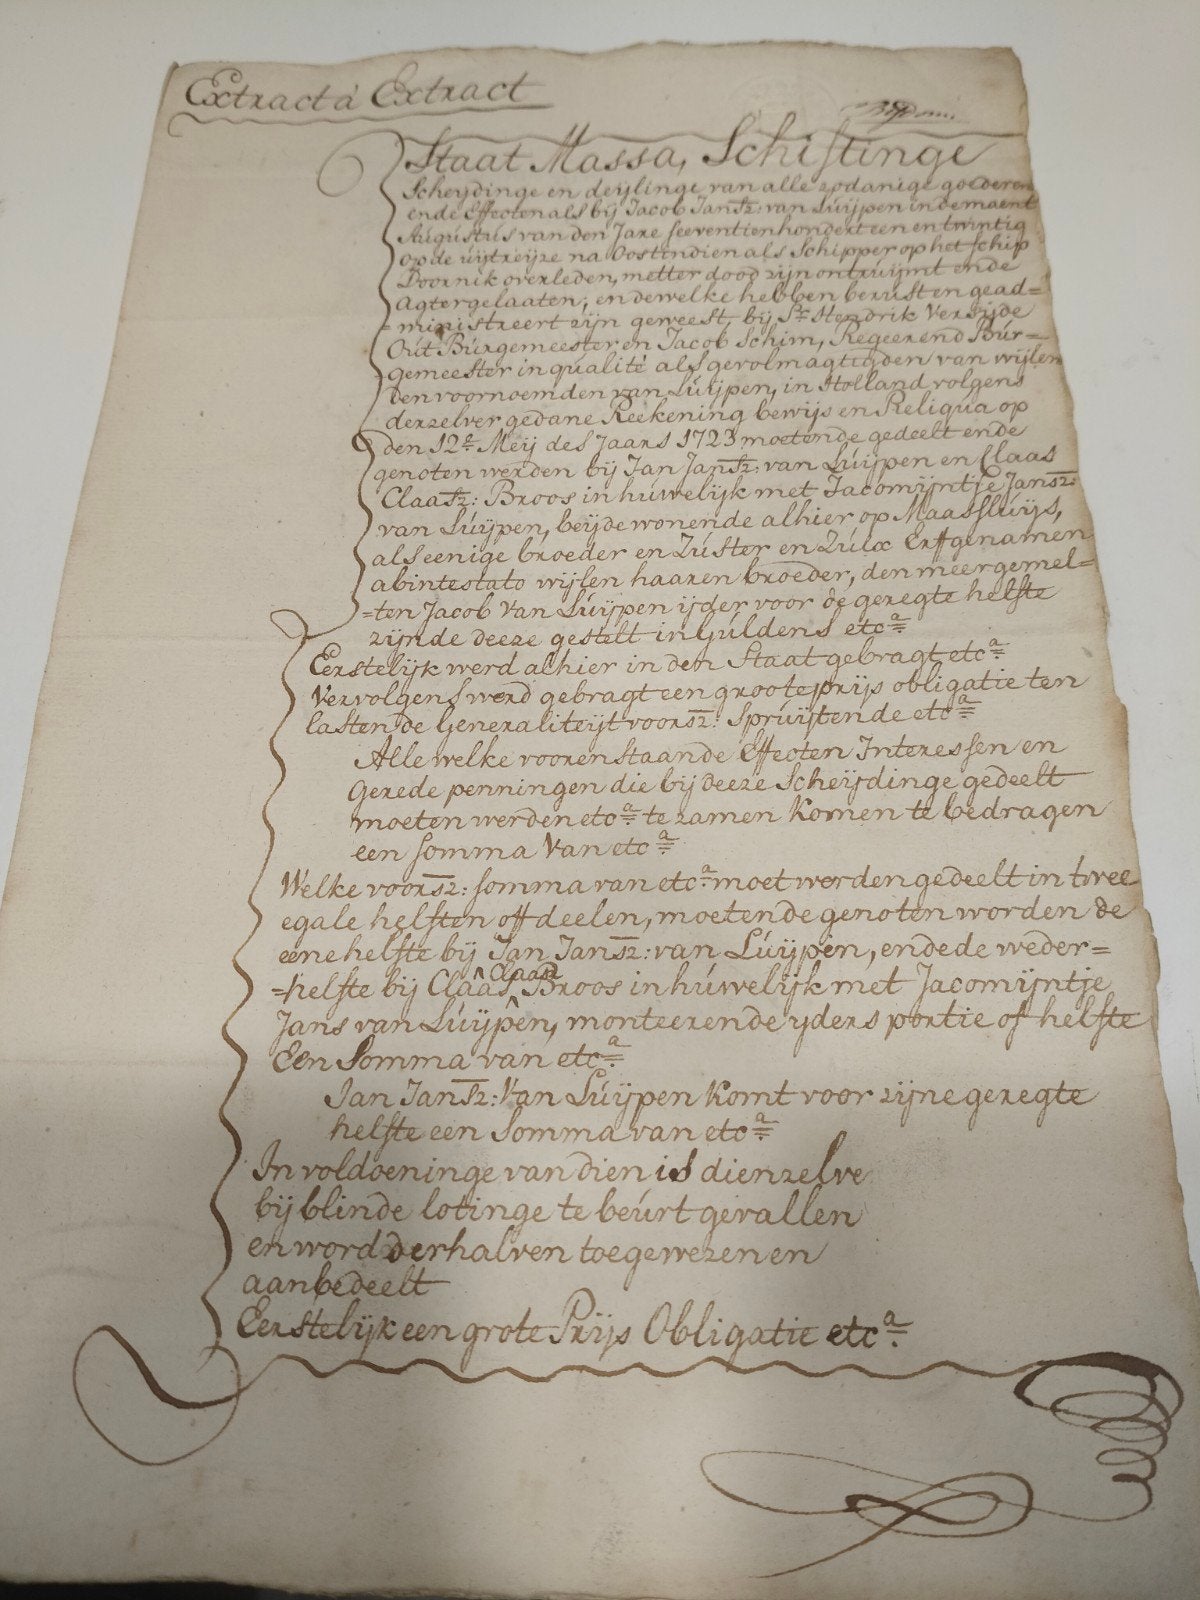 Extract á Extract
Staat Massa, Schiftinge
Scheydinge en deylinge van alle zodanige goederen
ende Effecten als bij Jacob Jansz: van Luijpen in de maent
Augustus van den Jare seeventienhondert een en twintig
op de uijtreijze na Oostindien als Schipper op het schip
Doornik overleden, metter dood zijn ontruijmt ende
agtergelaaten, en dewelke hebben berust en gead=
=ministreert zijn geweest, bij Sr. Hendrik Verzijde
Out Burgemeester en Jacob Schim, Regeerend Bur=
gemeester in qualité als gevolmagtigden van wijlen
den voornoemden van Luijpen, in Holland volgens
derzelver gedane Reekening bewijs en Reliqua op
den 12e. Meij des Jaars 1723 moetende gedeelt ende
genoten werden bij Jan Jansz: van Luijpen en Claas
Claasz: Broos in huwelijk met Jacomijntje Jansz:
van Luijpen, beijde wonende alhier op Maassluijs,
als eenige broeder en Zuster en Zulx Erffgenamen
abintestato wijlen haaren broeder, den meergemel=
=ten Jacob van Luijpen ijder voor de gezegte helfte
zijnde deeze gestelt in Guldens etca.
Eerstelijk werd alhier in den Staat gebragt etca.
Vervolgens werd gebragt een groote prijs obligatie ten
lasten de Generaliteijt voorsz: Spruijtende etca.
Alle welke voorenstaande Effecten Interessen en
Gerede penningen die bij deeze Scheijdinge gedeelt
moeten werden etca. te zamen komen te bedragen
een somma van etca.
Welke voorsz: somma van etca. moet worden gedeelt in twee
egale helften off deelen, moetende genoten worden de
eene helfte bij Jan Jansz: van Luijpen, ende de weder=
=helfte bij Claas Claasz Broos in huwelijk met Jacomijntje
Jans van Luijpen, monteerende yders portie of helfte
Een Somma van etca.
Jan Jansz: Van Luijpen komt voor zijne gezegte
helfte een Somma van etca.
In voldoeninge van dien is dienzelve
bij blinde lotinge te beurt gevallen
en word derhalven toegewezen en
aanbedeelt
Eerstelijk een grote Prijs Obligatie etca.